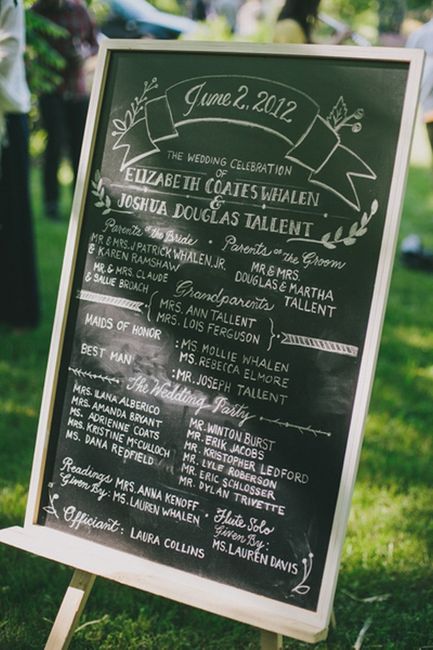 June 2, 2012
THE WEDDING CELEBRATION
OF
ELIZABETH COATES WHALEN
&
JOSHUA DOUGLAS TALLENT
Parents of the Bride
MR & MRS. J PATRICK WHALEN, JR.
& KAREN RAMSHAW
MR. & MRS. CLAUDE
& SALLIE BROACH
Parents of the Groom
MR & MRS.
DOUGLAS & MARTHA
TALLENT
Grandparents
MRS. ANN TALLENT
MRS. LOIS FERGUSON
MAIDS OF HONOR : MS. MOLLIE WHALEN
MS. REBECCA ELMORE
BEST MAN : MR. JOSEPH TALLENT
The Wedding Party
MRS. ILANA ALBERICO
MRS. AMANDA BRYANT
MS. ADRIENNE COATS
MRS. KRISTINE McCULLOCH
MS. DANA REDFIELD
MR. WINTON BURST
MR. ERIK JACOBS
MR. KRISTOPHER LEDFORD
MR. LYLE ROBERSON
MR. ERIC SCHLOSSER
MR. DYLAN TRIVETTE
Readings Given By: MRS. ANNA KENOFF
MS. LAUREN WHALEN
Flute Solo
Given By:
MS. LAUREN DAVIS
Officiant: LAURA COLLINS